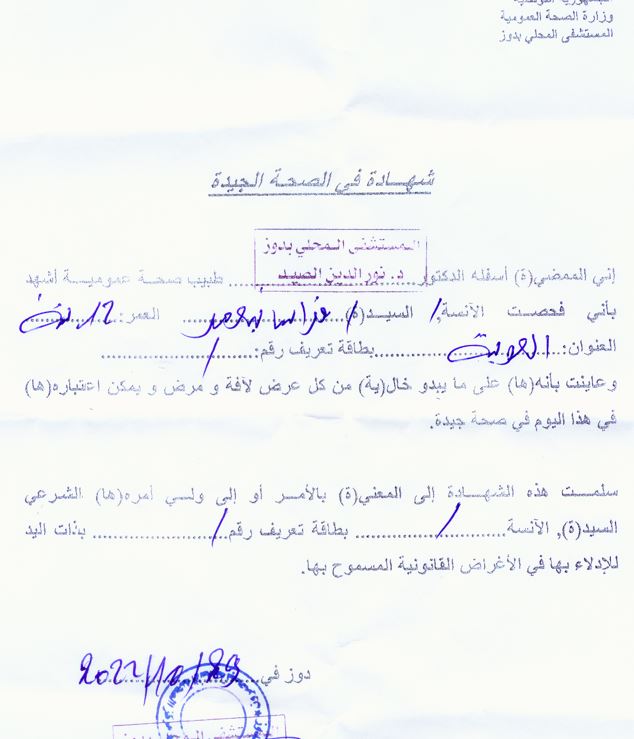 وزارة الصحة العمومية
المستشفى المحلي بدوز
شهـــادة في الصحة الجيدة
المستشفى المحلي بدوز
د. نور الدين الصيد
إني الممضي(ة) أسفله الدكتور.......................... طبيب صحـــة عموميـــة أشهد
بأني فحصـــت الآنسة, / السيـــد(ة)................ العمر:................
العنوان:......................بطاقة تعريف رقم:......../..............
وعاينت بأنه(ها) على ما يبدو خال(ية) من كل عرض لآفة و مرض و يمكن اعتباره(ها)
في هذا اليوم في صحة جيدة.
سلمـــت هذه الشهـــادة إلى المعني(ة) بالأمـــر أو إلى ولـــي أمره(ها) الشرعي
السيد(ة), الآنسة............/............ بطاقة تعريف رقم../................ بذات اليد
للإدلاء بها في الأغراض القانونية المسموح بها.
دوز في....
المستشفى المحلي بدوز